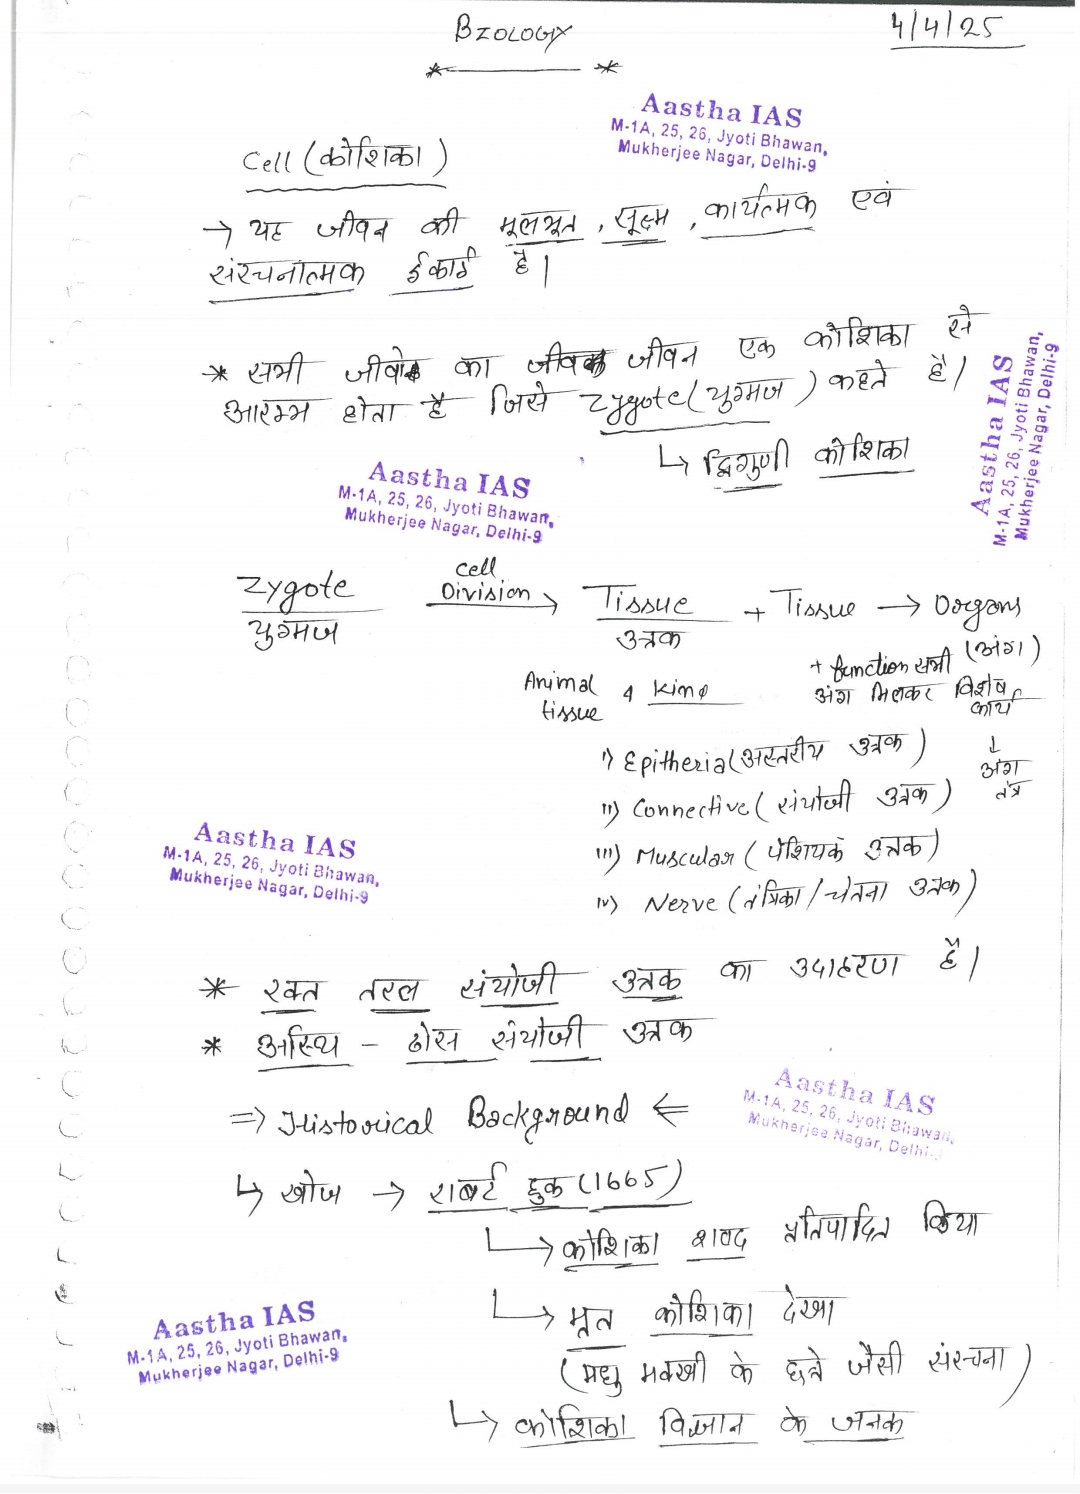 BIOLOGY
4/4/25
Aastha IAS
M-1A, 25, 26, Jyoti Bhawan,
Mukherjee Nagar, Delhi-9
Cell (कोशिका)
→ यह जीवन की मूलभूत, सूक्ष्म, कार्यत्मक एवं
संरचनात्मक ईकाई है।
* सभी जीवों का जीवन एक कोशिका से
आरम्भ होता है जिसे Zygote (युग्मज) कहते है।
↳ द्विगुणी कोशिका
Aastha IAS
M-1A, 25, 26, Jyoti Bhawan,
Mukherjee Nagar, Delhi-9
Aastha IAS
M-1A, 25, 26, Jyoti Bhawan,
Mukherjee Nagar, Delhi-9
Zygote cell Division → Tissue + Tissue → Organs
युग्मज ऊतक (अंग)
+ function सभी
अंग मिलकर विशेष
कार्य
↓
अंग
तंत्र
Animal tissue 4 kind
i) Epitheria (अस्तरीय ऊतक)
ii) Connective (संयोजी ऊतक)
iii) Muscular (पेशियक ऊतक)
iv) Nerve (तंत्रिका/चेतना ऊतक)
Aastha IAS
M-1A, 25, 26, Jyoti Bhawan,
Mukherjee Nagar, Delhi-9
* रक्त तरल संयोजी ऊतक का उदाहरण है।
* अस्थि - ठोस संयोजी ऊतक
Aastha IAS
M-1A, 25, 26, Jyoti Bhawan,
Mukherjee Nagar, Delhi-
⇒ Historical Background ⇐
↳ खोज → राबर्ट हुक (1665)
↳ कोशिका शब्द प्रतिपादित किया
↳ मृत कोशिका देखा
(मधु मक्खी के छत्ते जैसी संरचना)
↳ कोशिका विज्ञान के जनक
Aastha IAS
M-1A, 25, 26, Jyoti Bhawan,
Mukherjee Nagar, Delhi-9